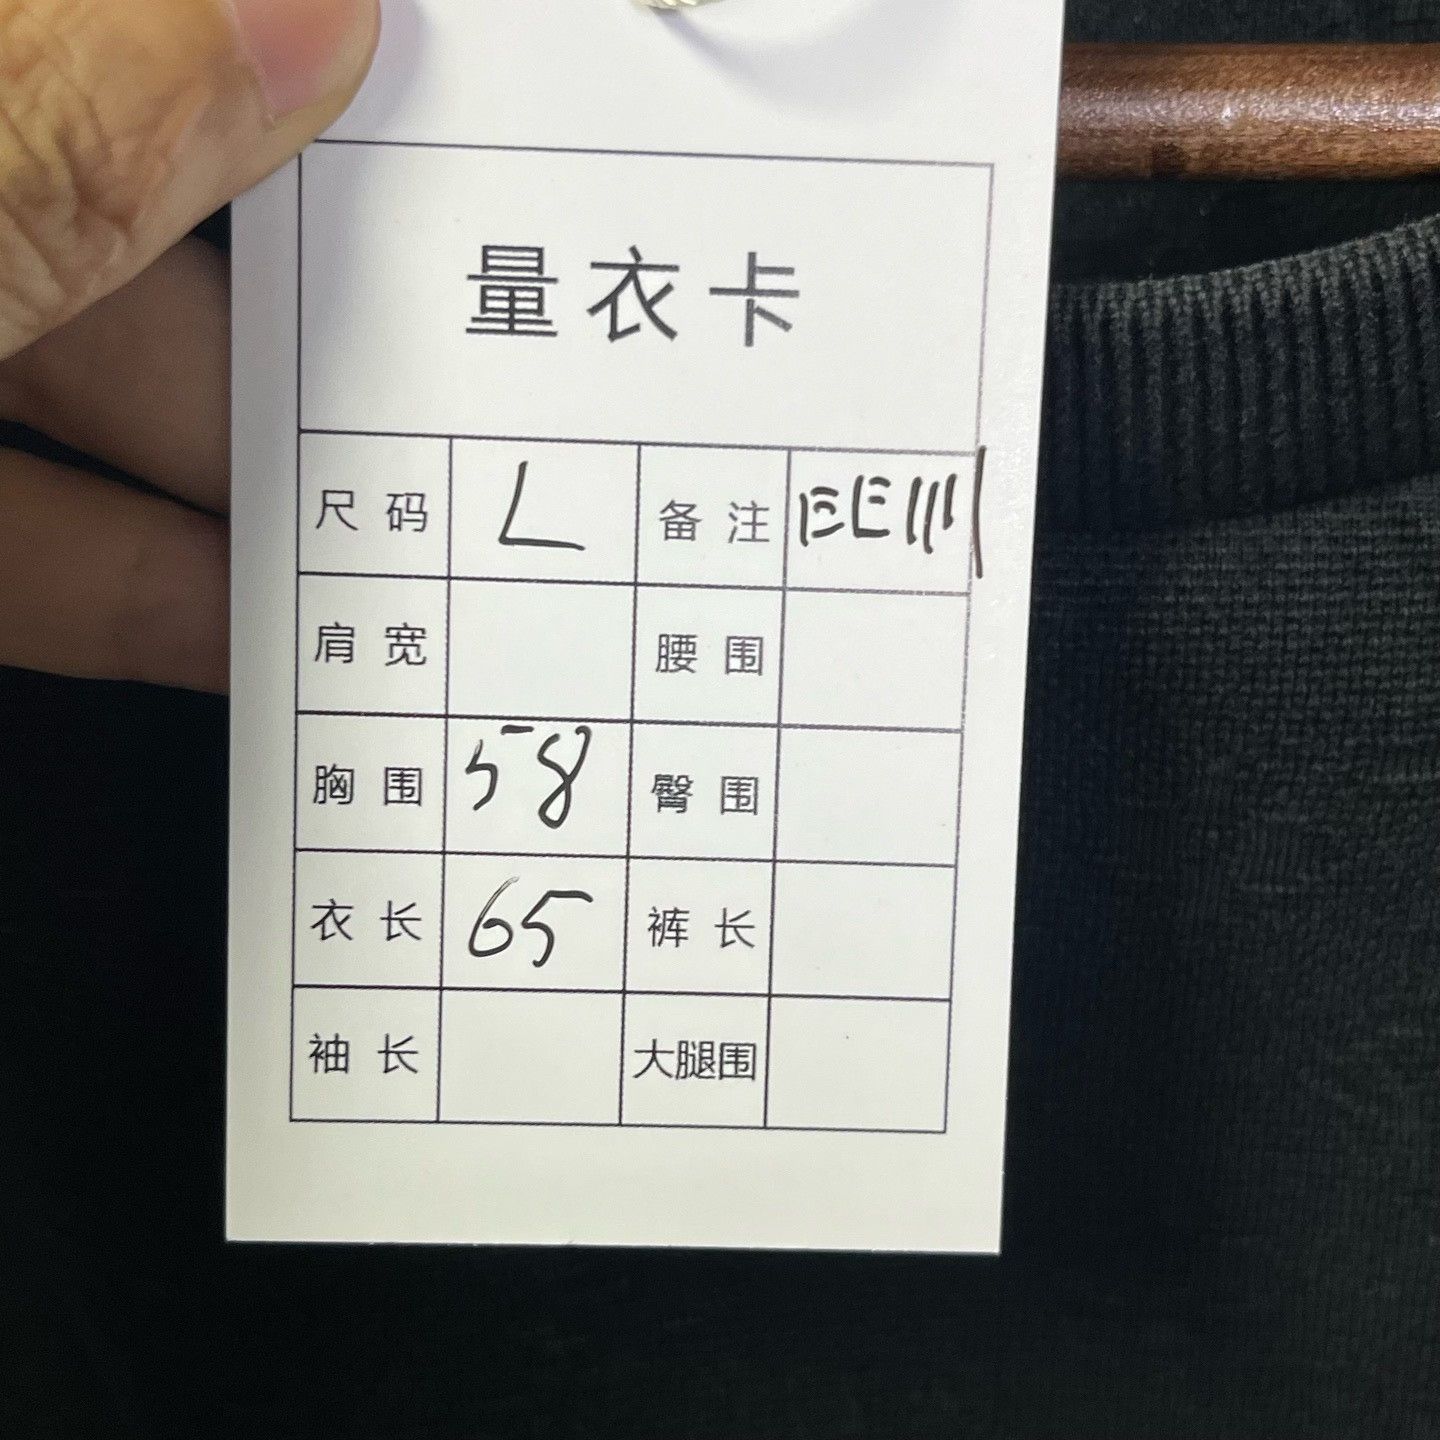 量衣卡
尺码 L 备注
肩宽 腰围
胸围 58 臀围
衣长 65 裤长
袖长 大腿围